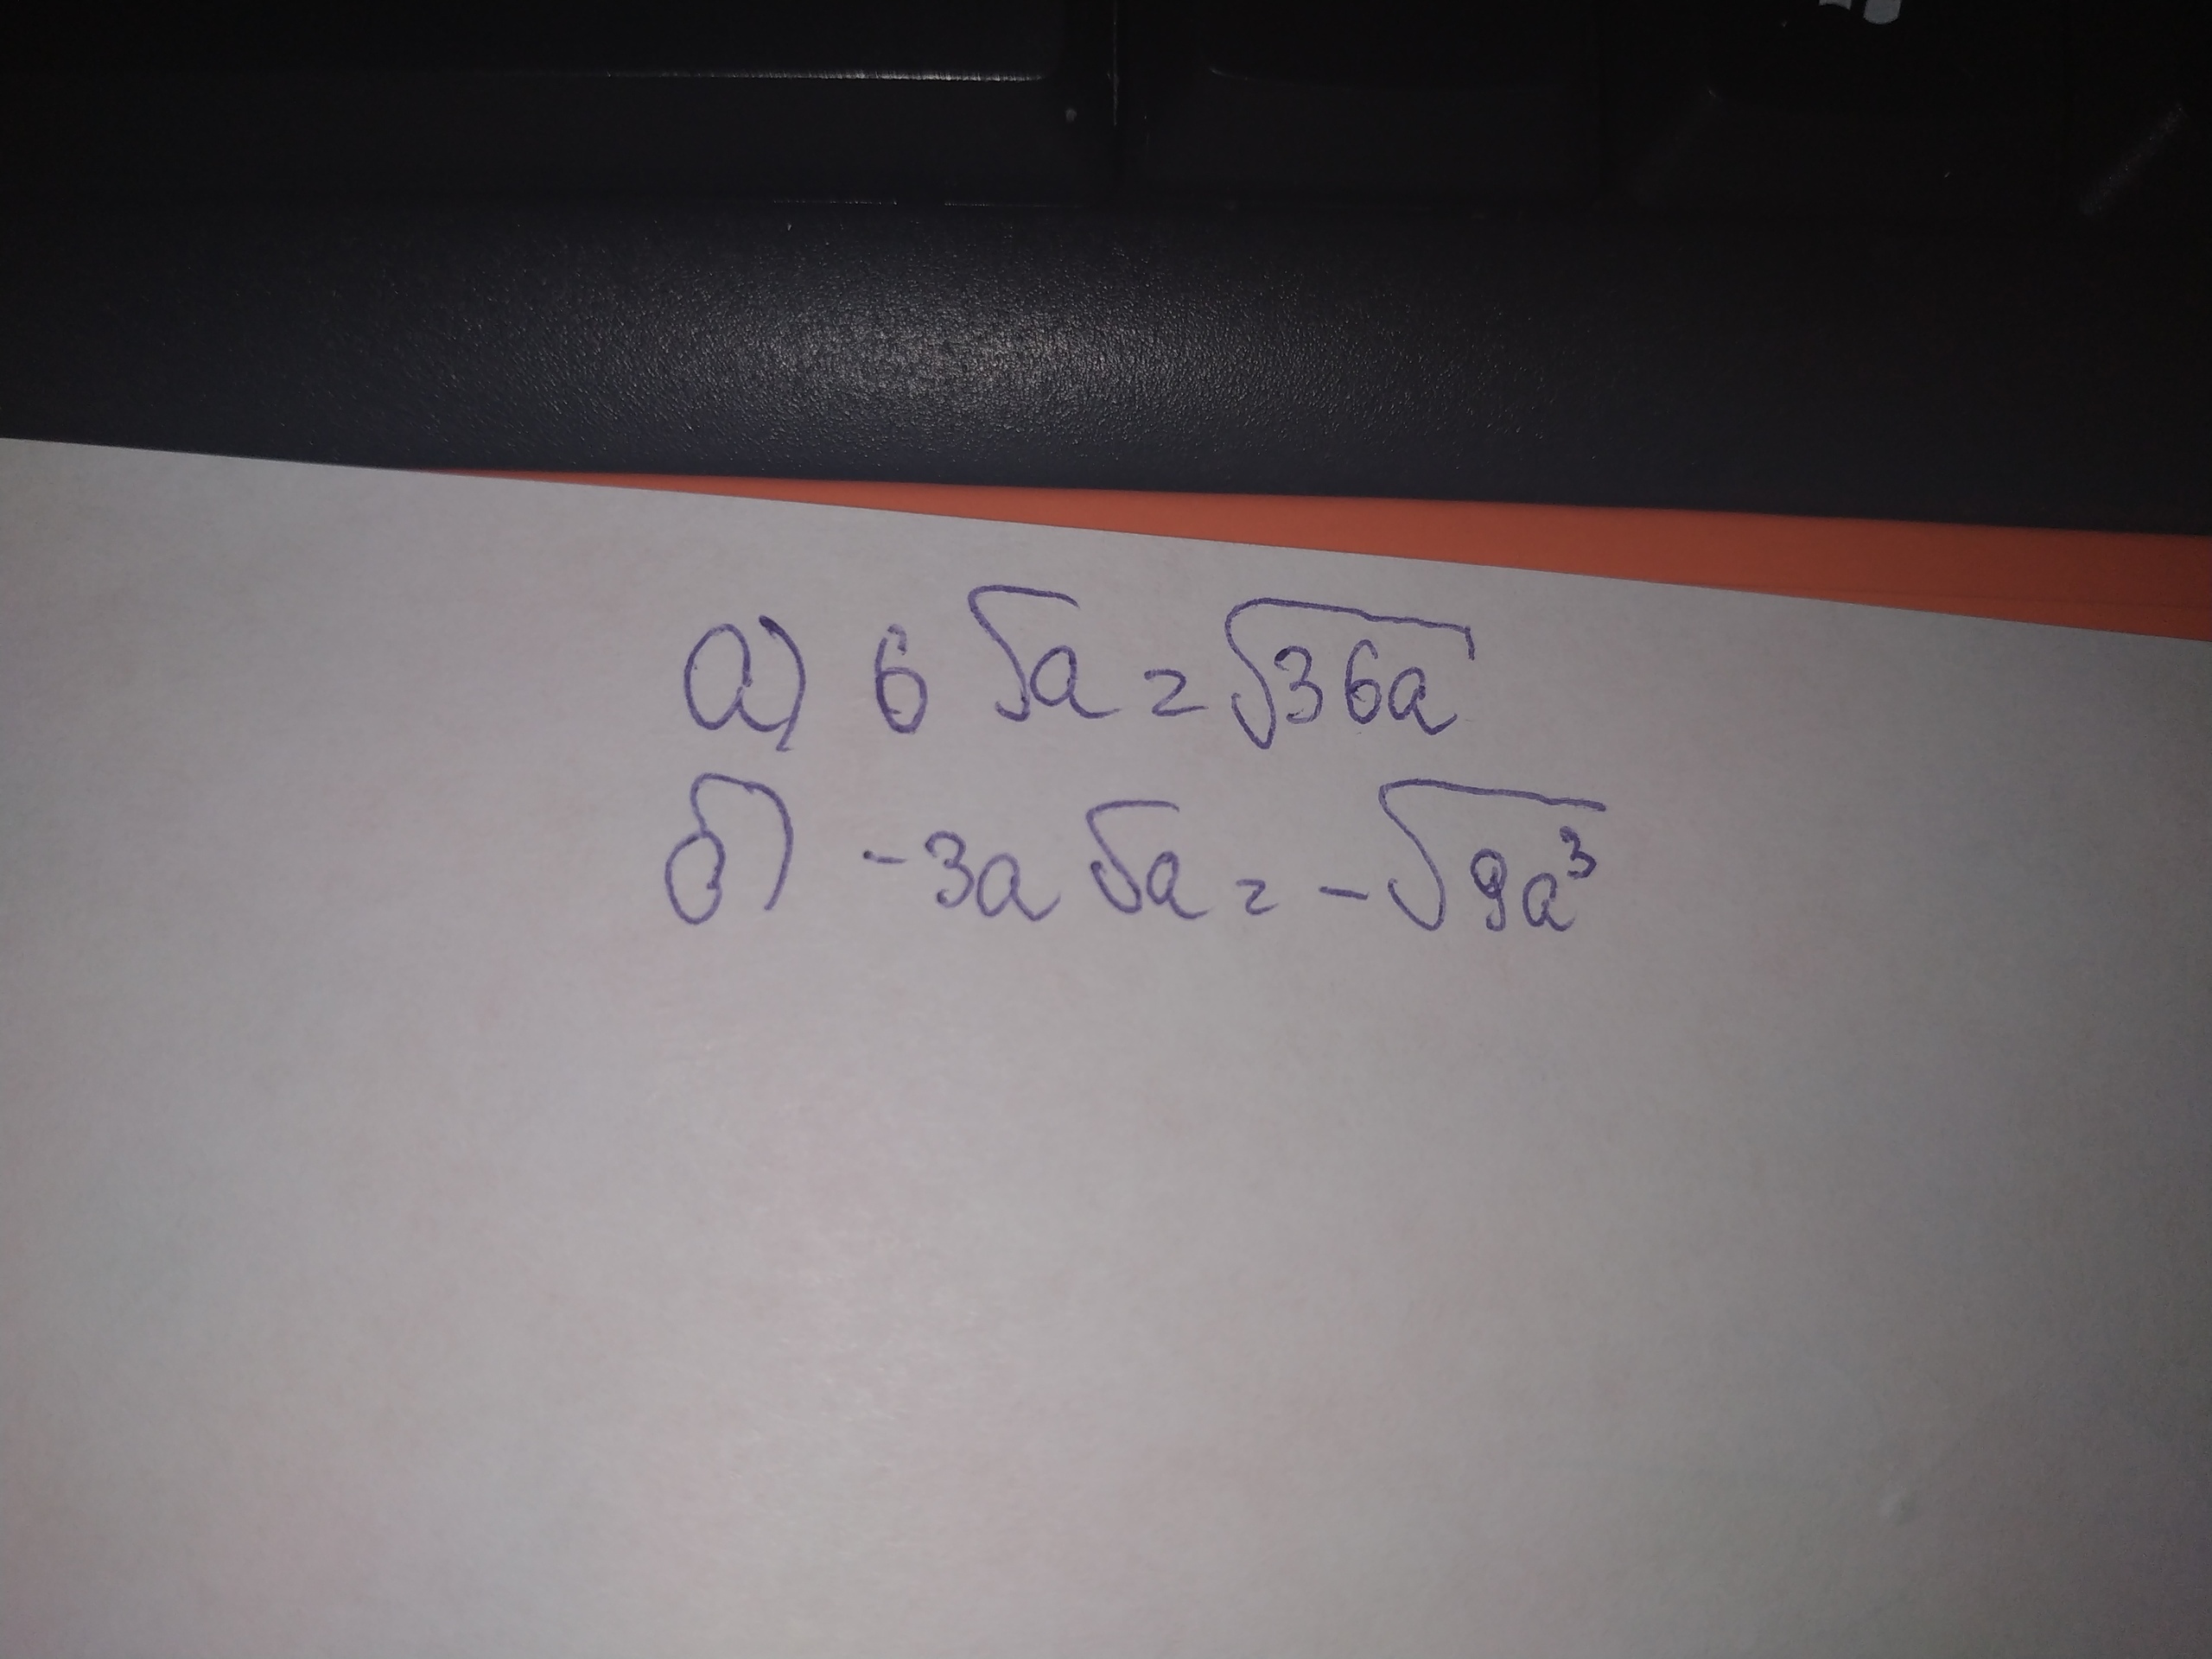 а) 6 √a = √36a
б) -3a √a = -√9a³